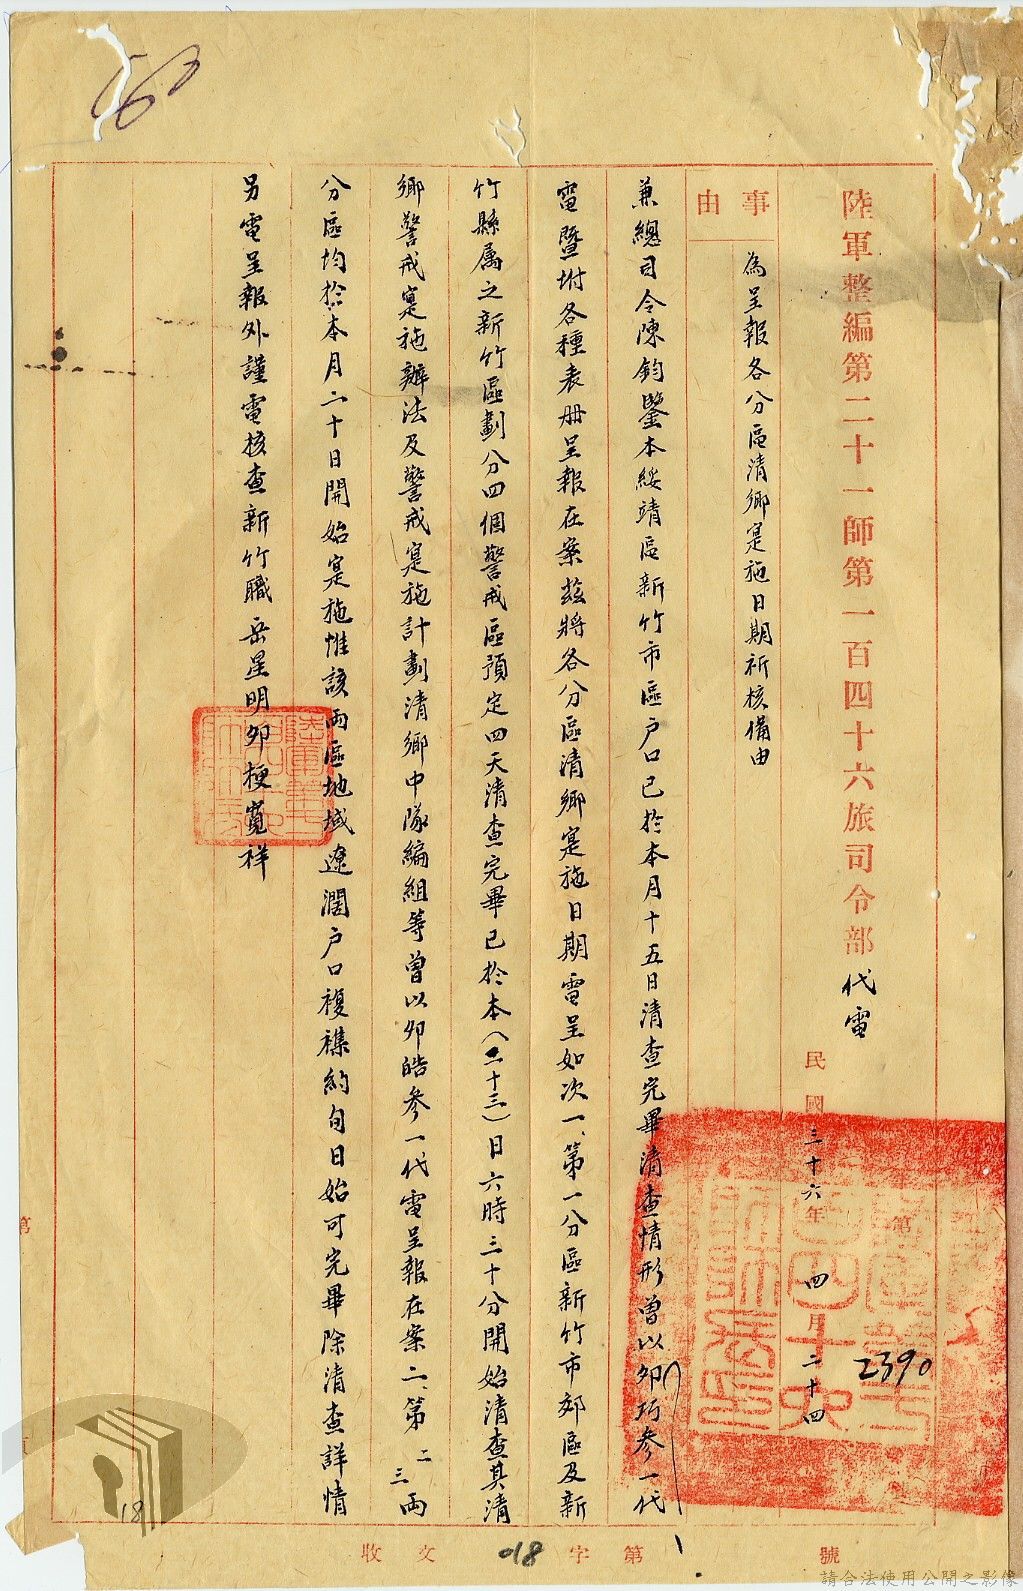 陸軍整編第二十一師第一百四十六旅司令部代電
民國三十六年四月二十四
第
2390
號
事由
為呈報各分區清鄉寔施日期祈核備由
兼總司令陳鈞鑒本綏靖區新竹市區户口已於本月十五日清查完畢清查情形曾以卯巧參一代
電暨坿各種表册呈報在案茲將各分區清鄉寔施日期電呈如次一、第一分區新竹市郊區及新
竹縣属之新竹區劃分四個警戒區預定四天清查完畢已於本(二十三)日六時三十分開始清查其清
鄉警戒寔施辦法及警戒寔施計劃清鄉中隊編組等曾以卯皓參一代電呈報在案二、第二三兩
分區均於本月二十日開始寔施惟該兩區地域遼濶户口複襍約旬日始可完畢除清查詳情
另電呈報外謹電核查新竹職岳星明卯梗寬祥
收文 字第
018
18
請合法使用公開之影像